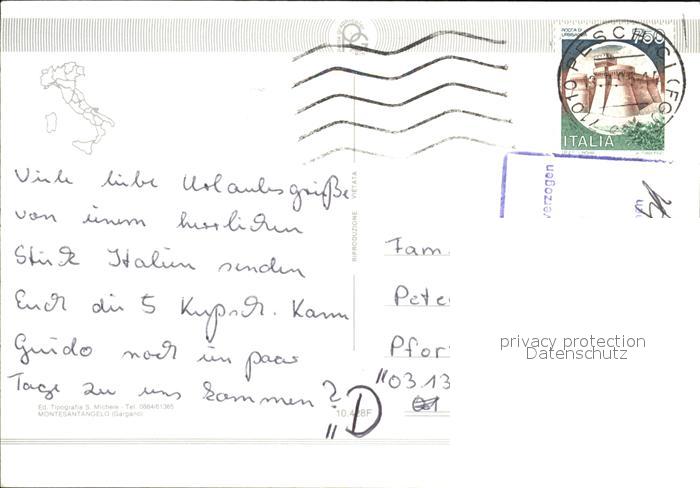 ROCCA DI URBISAGLIA
ITALIA
71010 PESCHICI (FG)
verzogen
Viele liebe Urlaubsgrüße
von einem herrlichen
Stück Italien senden
Euch die 5 Kupsch. Kann
Guido noch ein paar
Tage zu uns kommen?
RIPRODUZIONE VIETATA
Fam.
Pete
Pfor
"03.13
"D
privacy protection
Datenschutz
Ed. Tipografia S. Michele - Tel. 0884/61365
MONTESANTANGELO (Gargano)